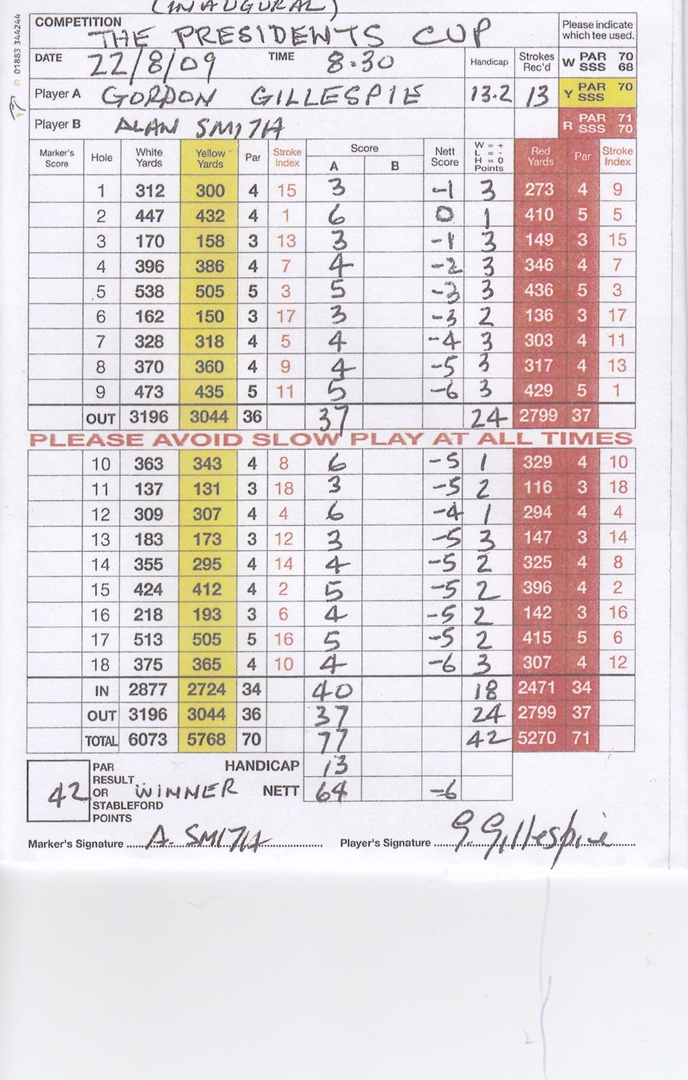 (INAUGURAL)
© 01883 344244
COMPETITION THE PRESIDENTS CUP Please indicate which tee used.
DATE 22/8/09 TIME 8:30 Handicap Strokes Rec'd W PAR 70 SSS 68
Player A GORDON GILLESPIE 13.2 13 Y PAR 70 SSS
Player B ALAN SMITH R PAR 71 SSS 70
Marker's Score Hole White Yards Yellow Yards Par Stroke Index Score A B Nett Score W = + L = - H = 0 Points Red Yards Par Stroke Index
1 312 300 4 15 3 -1 3 273 4 9
2 447 432 4 1 6 0 1 410 5 5
3 170 158 3 13 3 -1 3 149 3 15
4 396 386 4 7 4 -2 3 346 4 7
5 538 505 5 3 5 -3 3 436 5 3
6 162 150 3 17 3 -3 2 136 3 17
7 328 318 4 5 4 -4 3 303 4 11
8 370 360 4 9 4 -5 3 317 4 13
9 473 435 5 11 5 -6 3 429 5 1
OUT 3196 3044 36 37 24 2799 37
PLEASE AVOID SLOW PLAY AT ALL TIMES
10 363 343 4 8 6 -5 1 329 4 10
11 137 131 3 18 3 -5 2 116 3 18
12 309 307 4 4 6 -4 1 294 4 4
13 183 173 3 12 3 -5 3 147 3 14
14 355 295 4 14 4 -5 2 325 4 8
15 424 412 4 2 5 -5 2 396 4 2
16 218 193 3 6 4 -5 2 142 3 16
17 513 505 5 16 5 -5 2 415 5 6
18 375 365 4 10 4 -6 3 307 4 12
IN 2877 2724 34 40 18 2471 34
OUT 3196 3044 36 37 24 2799 37
TOTAL 6073 5768 70 77 42 5270 71
42 PAR RESULT OR STABLEFORD POINTS WINNER HANDICAP 13
NETT 64 -6
Marker's Signature A. SMITH Player's Signature G. Gillespie